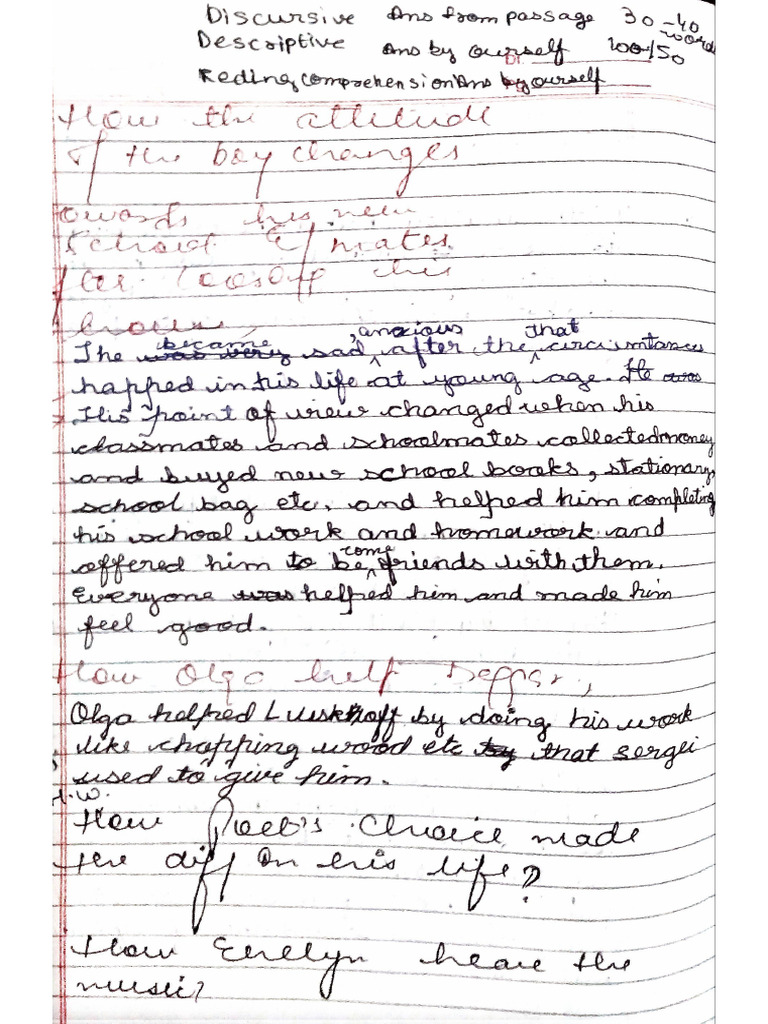 Discursive Ans from passage 30-40 words
Descriptive Ans by ourself 100/150
Reding comprehension Ans by ourself
How the attitude
of the boy changes
towards his new
School & mates
after loosing his
house,
The was very became sad, anxious after the that circumtances
happed in his life at young age. He was
His point of view changed when his
classmates and schoolmates collected money
and buyed new school books, stationary,
school bag etc. and helped him completing
his school work and homework and
offered him to become friends with them.
Everyone was helped him and made him
feel good.
How Olga help Beggar,
Olga helped Lushkoff by doing his work
like chopping wood etc by that sergei
used to give him.
H.W.
How Poet's Choice made
the diff on his life?
How Evelyn heare the
music?